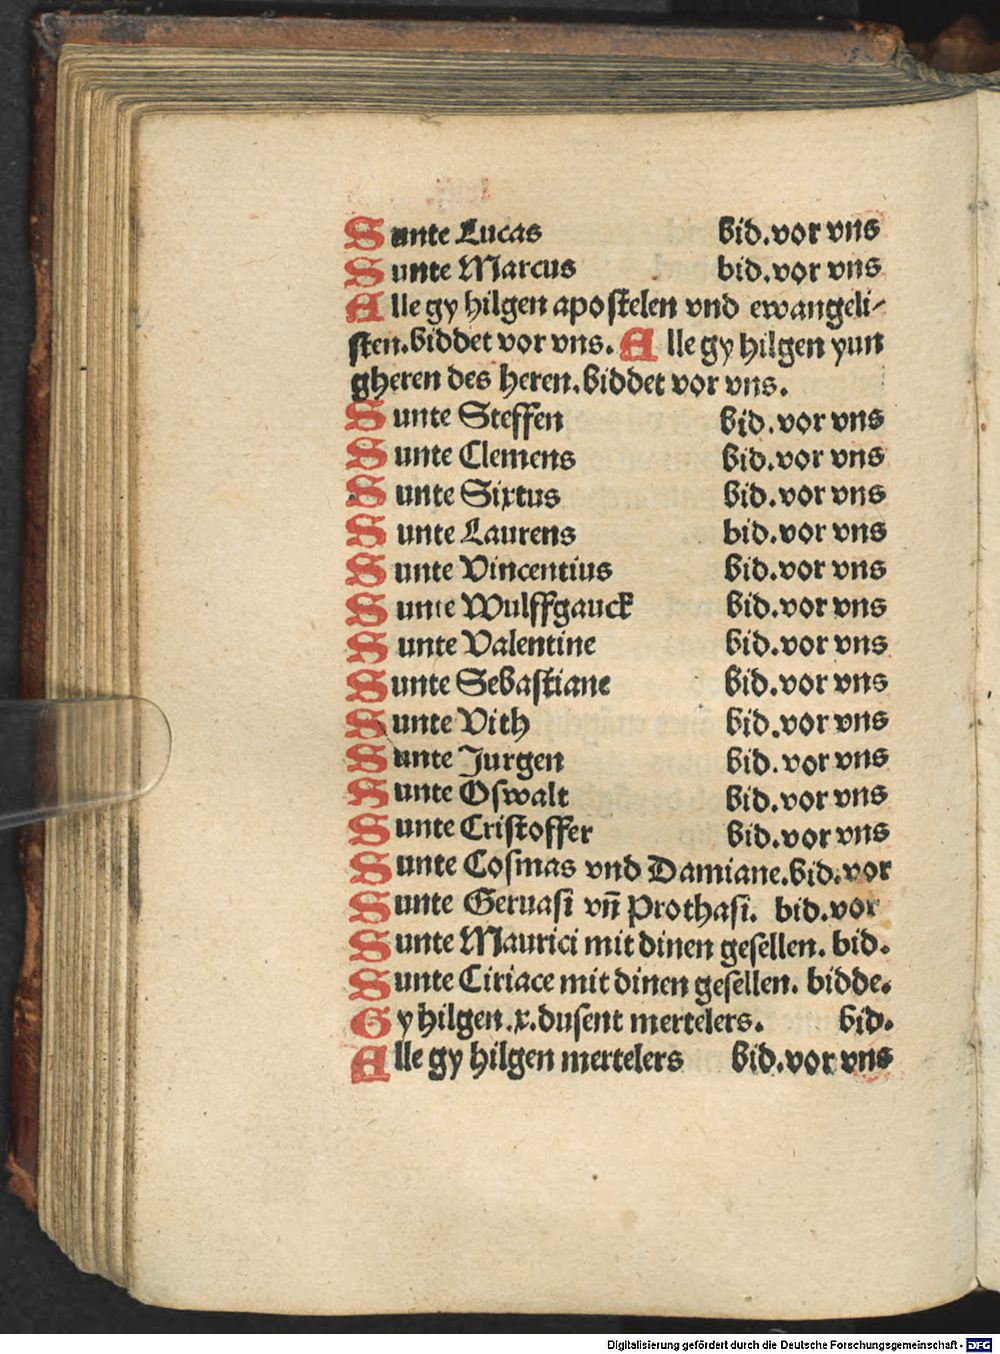 Sunte Lucas bid.vor vns
Sunte Marcus bid.vor vns
Alle gy hilgen apostelen vnd ewangeli-
sten.biddet vor vns. Alle gy hilgen yun
gheren des heren.biddet vor vns.
Sunte Steffen bid.vor vns
Sunte Clemens bid.vor vns
Sunte Sixtus bid.vor vns
Sunte Laurens bid.vor vns
Sunte Vincentius bid.vor vns
Sunte Wulffgauck bid.vor vns
Sunte Valentine bid.vor vns
Sunte Sebastiane bid.vor vns
Sunte Vith bid.vor vns
Sunte Jurgen bid.vor vns
Sunte Oswalt bid.vor vns
Sunte Cristoffer bid.vor vns
Sunte Cosmas vnd Damiane.bid.vor
Sunte Geruasi vn̄ Prothasi. bid.vor
Sunte Maurici mit dinen gesellen. bid.
Sunte Ciriace mit dinen gesellen. bidde.
Gy hilgen.x.dusent mertelers. bid.
Alle gy hilgen mertelers bid.vor vns
Digitalisierung gefördert durch die Deutsche Forschungsgemeinschaft - DFG